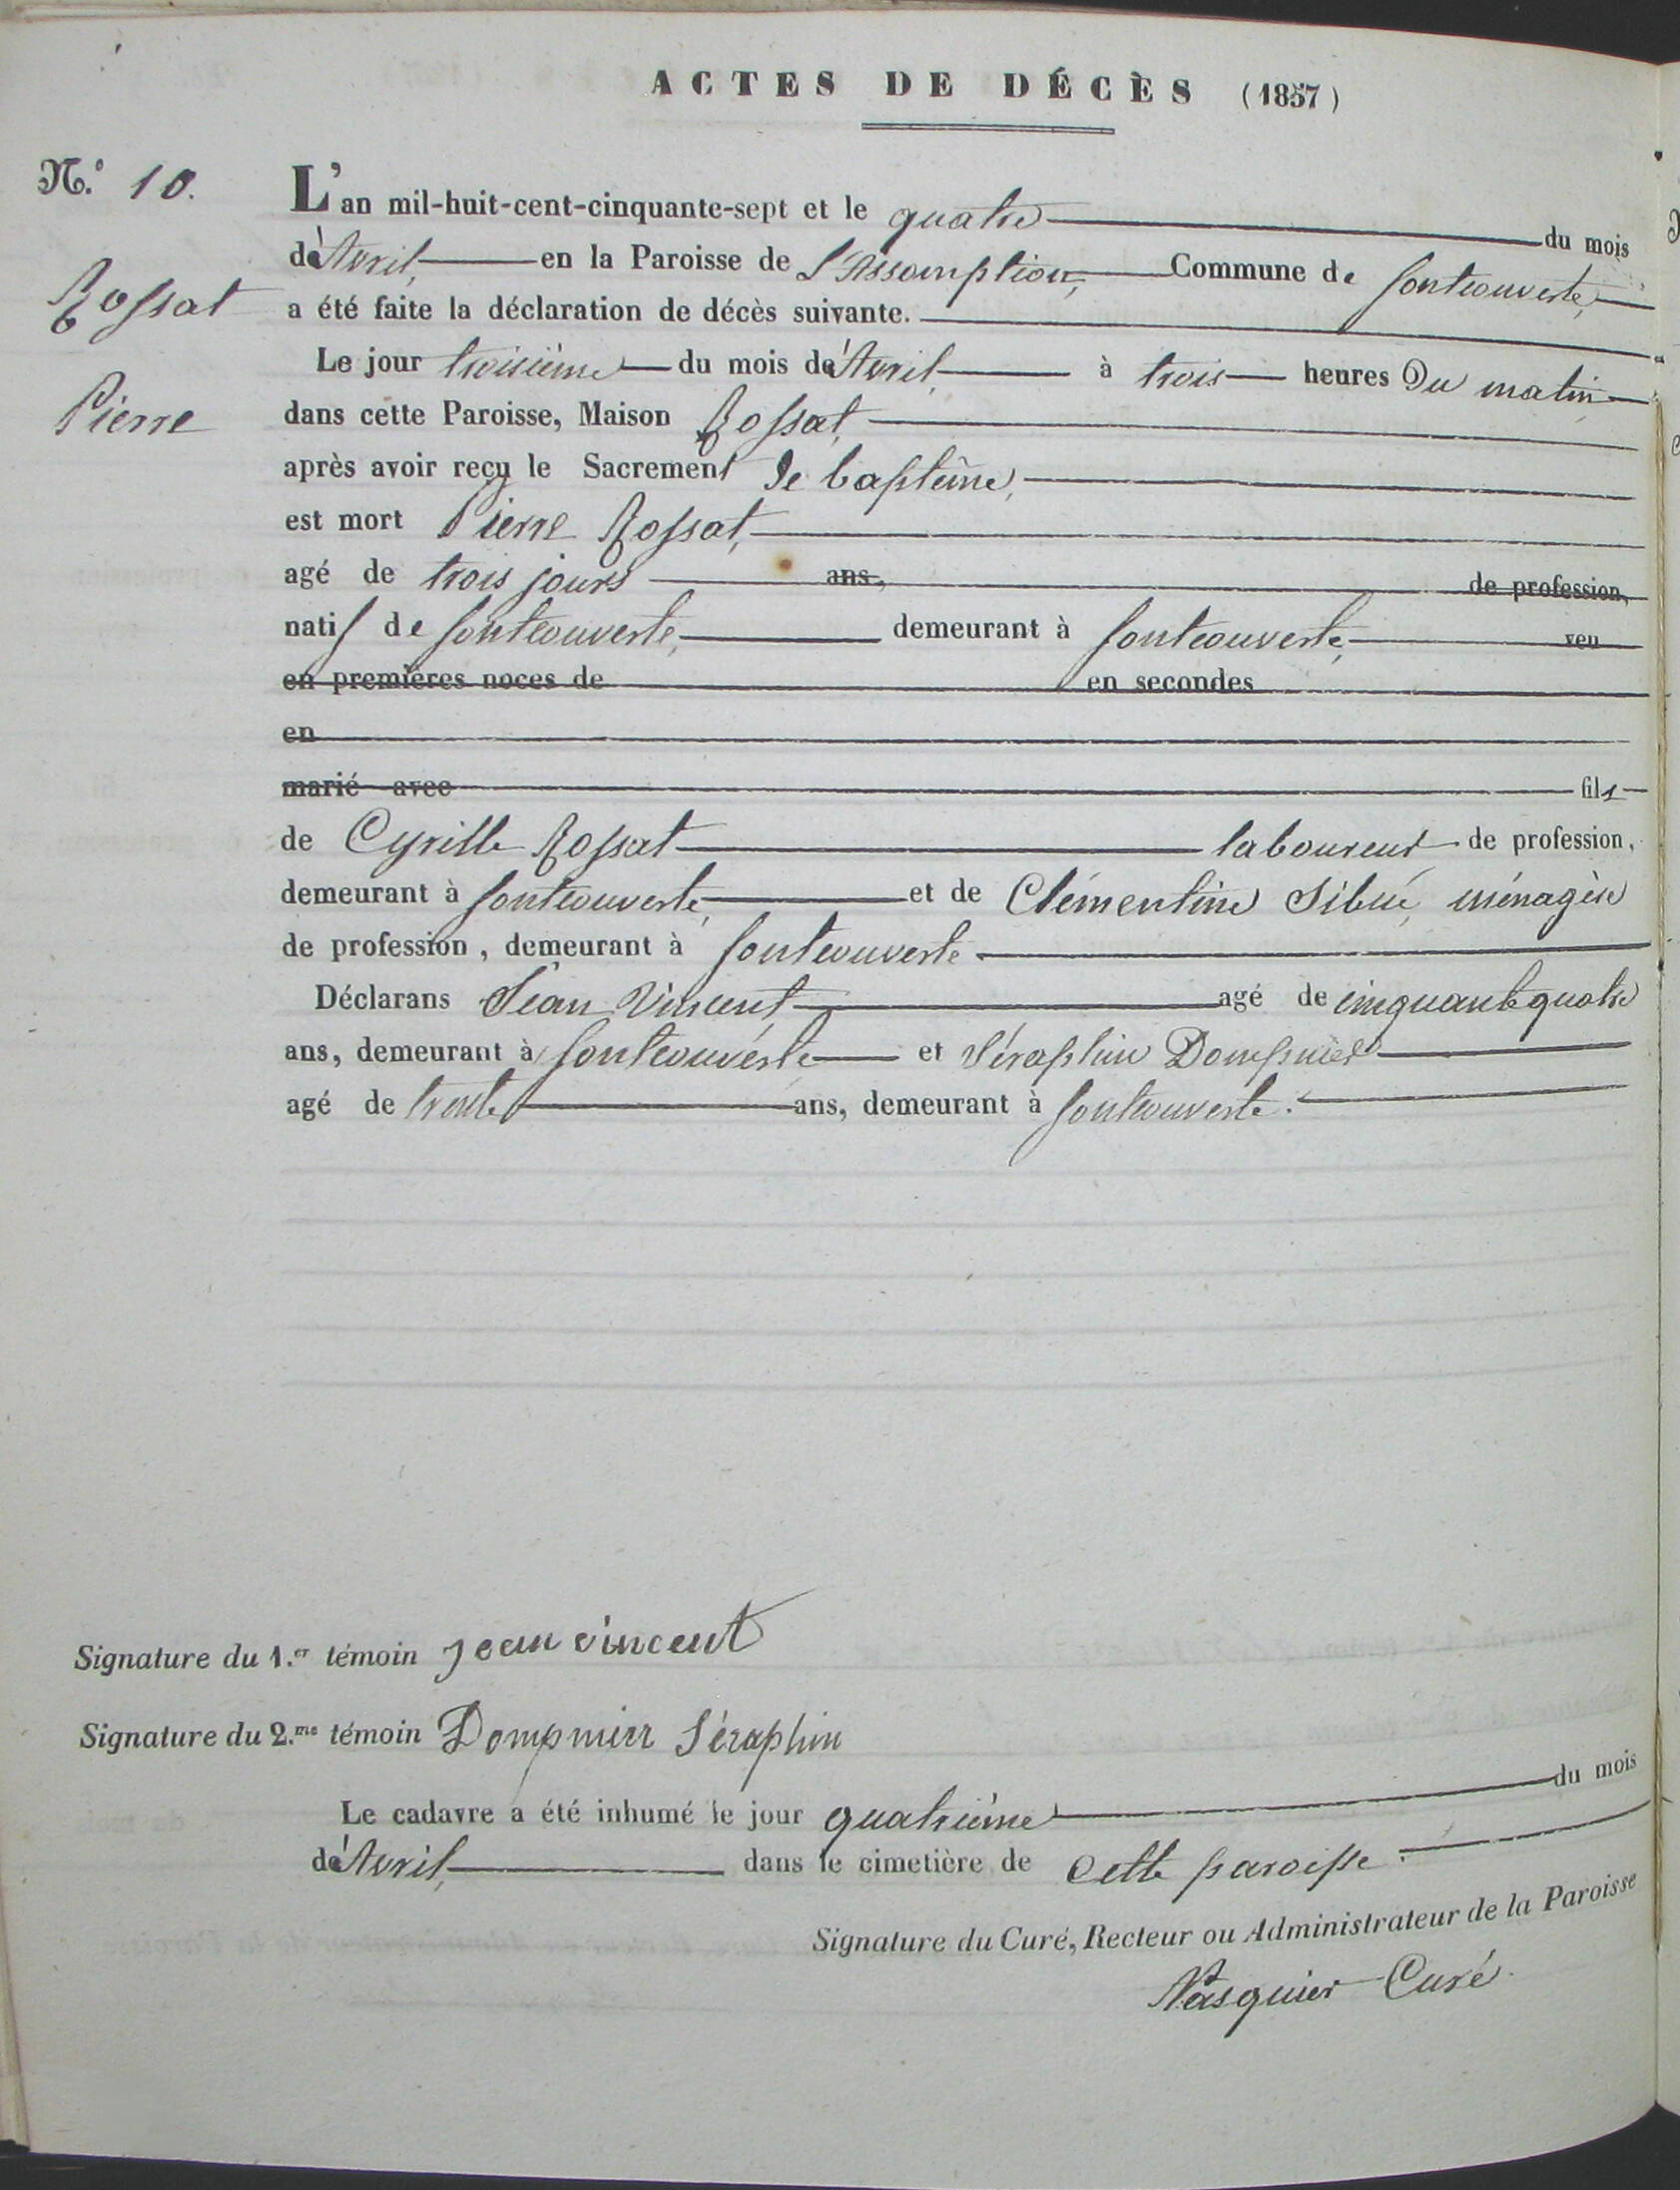 ACTES DE DÉCÈS (1857)
N.º 10.
Rossat
Pierre
L'an mil-huit-cent-cinquante-sept et le quatre du mois
d'Avril, en la Paroisse de L'Assomption, Commune de fontcouverte,
a été faite la déclaration de décès suivante.
Le jour troisième du mois d'Avril à trois heures Du matin
dans cette Paroisse, Maison Rossat,
après avoir reçu le Sacrement De baptême,
est mort Pierre Rossat,
agé de trois jours ans, de profession,
natif de fontcouverte, demeurant à fontcouverte, veu
en premières noces de en secondes
en
marié avec fils
de Cyrille Rossat laboureur de profession,
demeurant à fontcouverte, et de Clémentine Sibué, ménagère
de profession, demeurant à fontcouverte
Déclarans Jean Vincent agé de cinquante quatre
ans, demeurant à fontcouverte et Séraphin Dompnier
agé de trente ans, demeurant à fontcouverte.
Signature du 1.er témoin jean vincent
Signature du 2.me témoin Dompnier Séraphin
Le cadavre a été inhumé le jour quatrième du mois
d'Avril, dans le cimetière de cette paroisse.
Signature du Curé, Recteur ou Administrateur de la Paroisse
Curé.